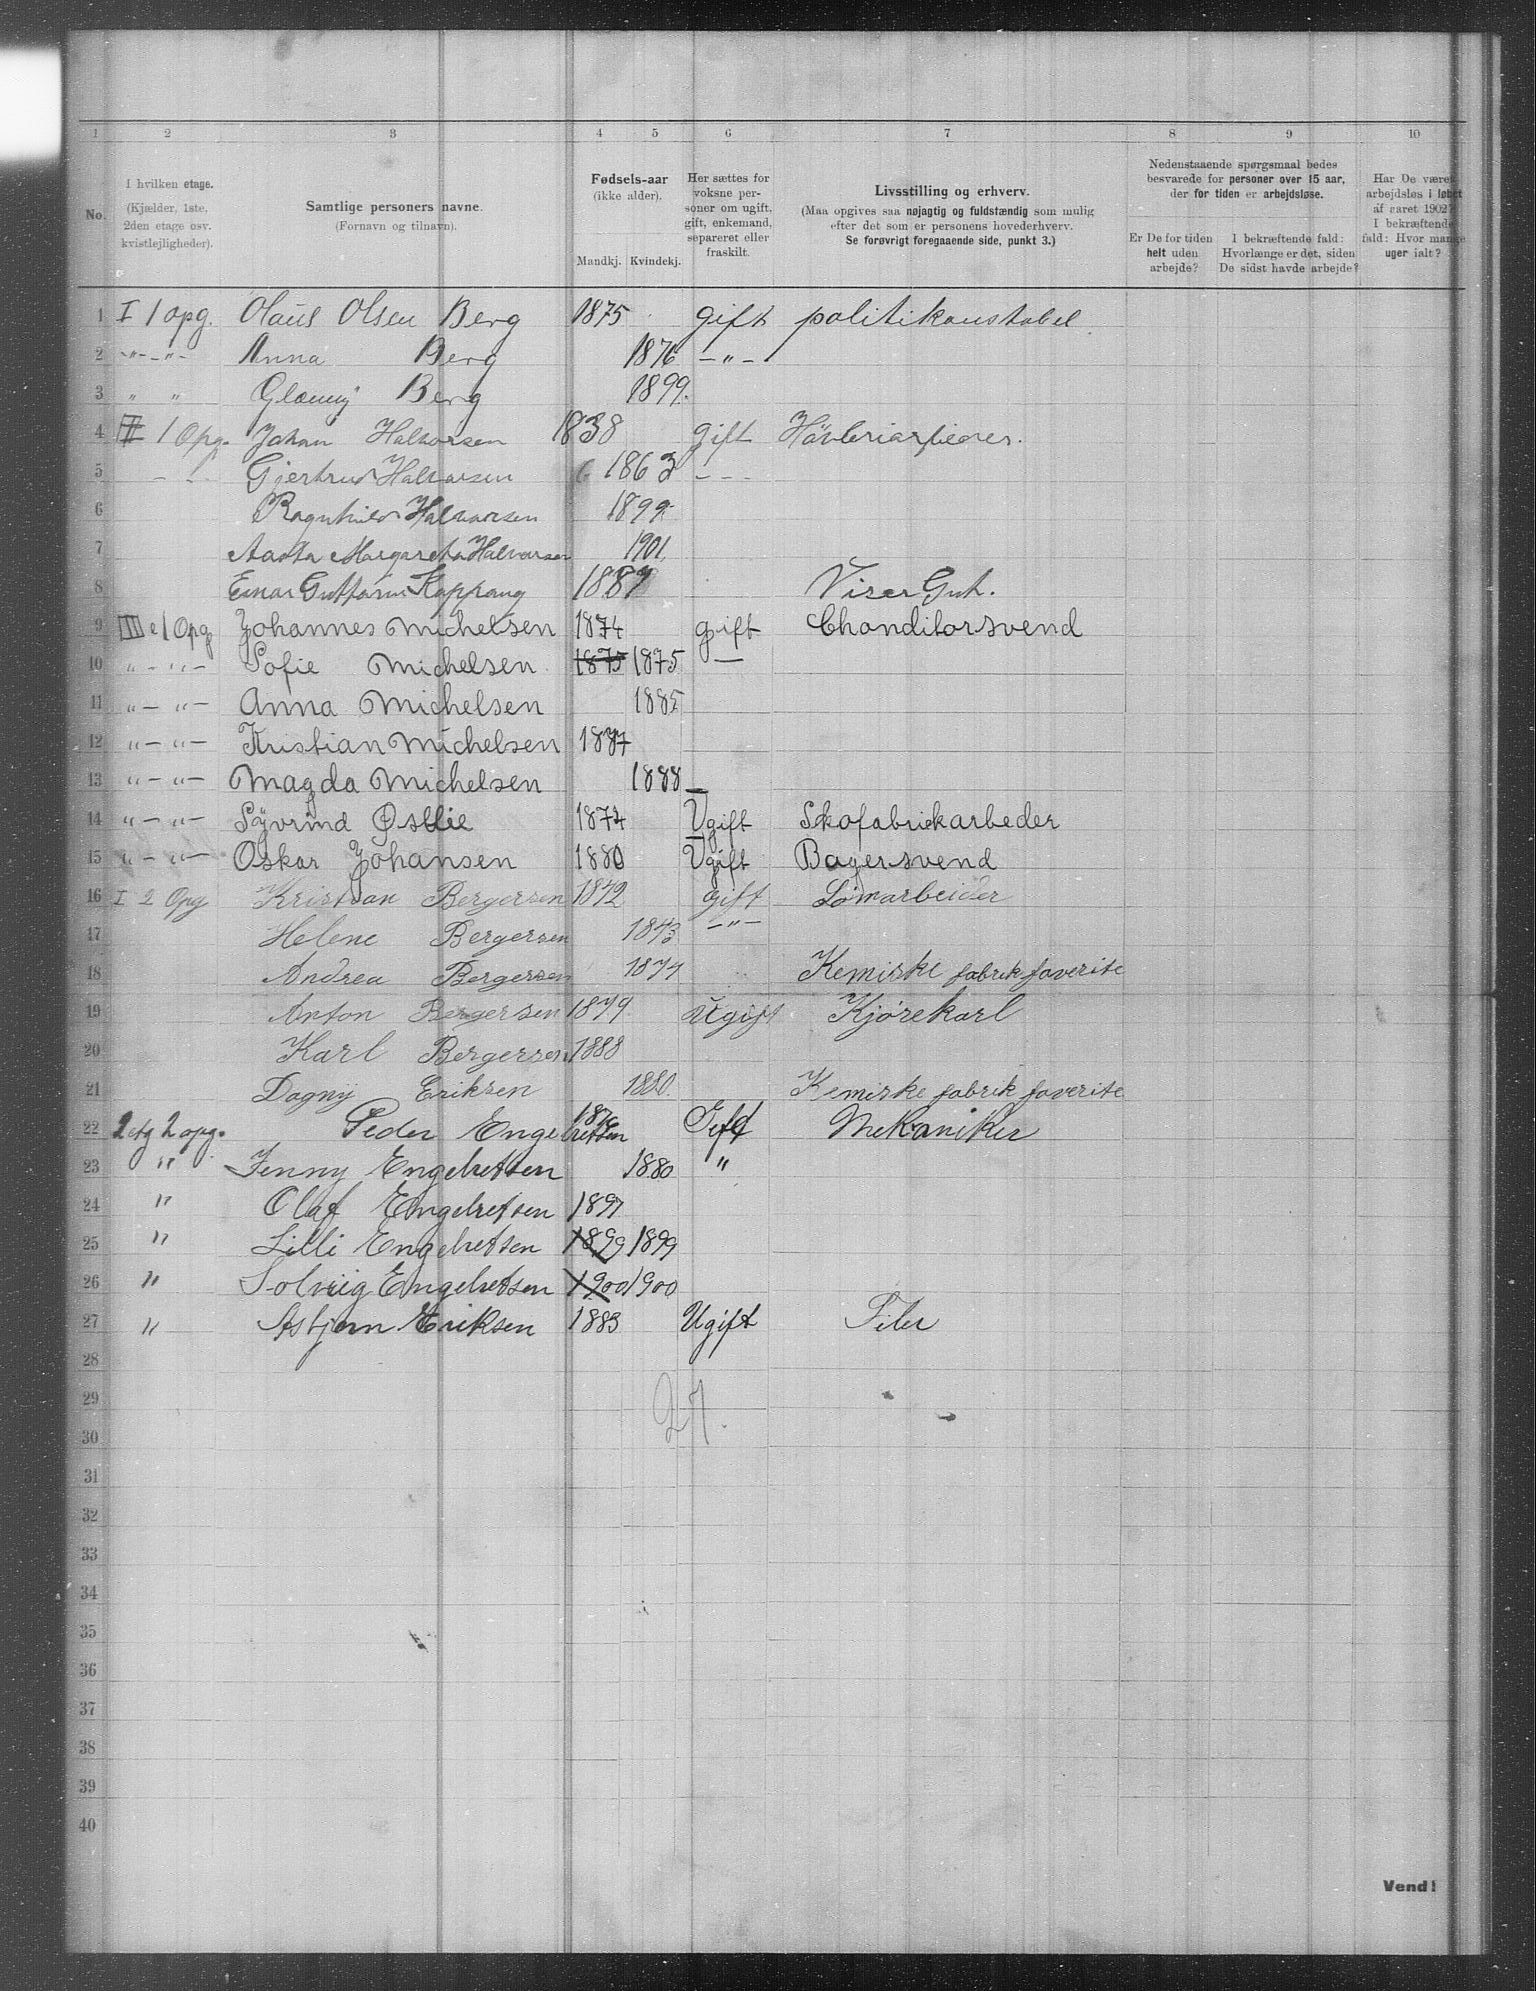 1 2 3 4 5 6 7 8 9 10
No.
I hvilken etage.
(Kjælder, 1ste,
2den etage osv.
kvistlejligheder).
Samtlige personers navne.
(Fornavn og tilnavn).
Fødsels-aar
(ikke alder).
Mandkj. Kvindekj.
Her sættes for
voksne per-
soner om ugift,
gift, enkemand,
separeret eller
fraskilt.
Livsstilling og erhverv.
(Maa opgives saa nøjagtig og fuldstændig som mulig
efter det som er personens hovederhverv.
Se forøvrigt foregaaende side, punkt 3.)
Nedenstaaende spørgsmaal bedes
besvarede for personer over 15 aar,
der for tiden er arbejdsløse.
Er De for tiden
helt uden
arbejde?
I bekræftende fald:
Hvorlænge er det, siden
De sidst havde arbejde?
Har De været
arbejdsløs i løbet
af aaret 1902?
I bekræftende
fald: Hvor mange
uger ialt?
1 I 1 opg. Olaus Olsen Berg 1875 gift politikonstabel
2 -"- -"- Anna Berg 1876 -"-
3 " " Berg 1899.
4 II 1 Opg. Johan Halvorsen 1838 gift
5 - - Gjertrud Halvorsen 1863 - - -
6 Ragnhild Halvorsen 1899
7 Aasta Margareta Halvorsen 1901
8 Einar Guttorm Kappang 1887 Viser Gut.
9 III e 1 Opg Johannes Michelsen 1874 gift Chonditorsvend
10 "- "- Sofie Michelsen 1875 1875 —
11 "- "- Anna Michelsen 1885
12 "- "- Kristian Michelsen 1887
13 "- "- Magda Michelsen 1888 —
14 "- "- Syvrind Østlie 1874 Ugift Skofabrickarbeder
15 "- "- Oskar Johansen 1880 Ugift Bagersvend
16 I 2 Opg Kristian Bergersen 1842 gift Lønarbeider
17 Helene Bergersen 1843 -"-
18 Andrea Bergersen 1877 Kemiske fabrik faverite
19 Anton Bergersen 1879 Ugift Kjørekarl
20 Karl Bergersen 1888
21 Dagny Eriksen 1880. Kemiske fabrik faverite
22 2 etg 2 opg. Peder Engebretsen 1876 Gift Mekaniker
23 " Jenny Engebretsen 1880 "
24 " Olaf Engebretsen 1897
25 " Lilli Engebretsen 1899 1899
26 " Solveig Engebretsen 1900 1900
27 " Asbjørn Eriksen 1883 Ugift Filer
28
29
27.
30
31
32
33
34
35
36
37
38
39
40
Vend!